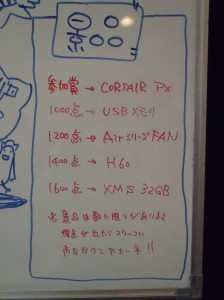 景品
参加賞 → CORSAIR Tx
1000点 → USBメモリ
1200点 → AirシリーズFAN
1400点 → H60
1600点 → XMS 32GB
※景品は数に限りがあります
得点が出たらスタッフに
声をかけて下さいネ!!